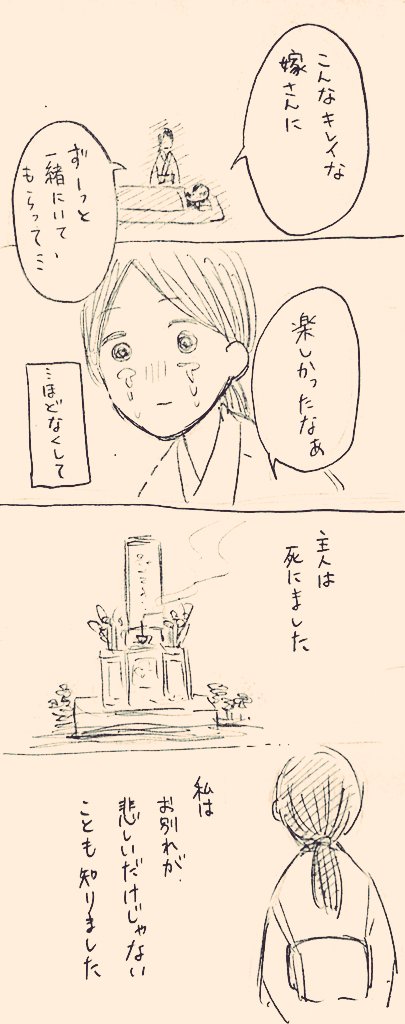 こんなキレイな
嫁さんに
ずーっと
一緒にいて
もらって……
楽しかったなぁ
…ほどなくして
主人は
死にました
私は
お別れが
悲しいだけじゃない
ことも知りました